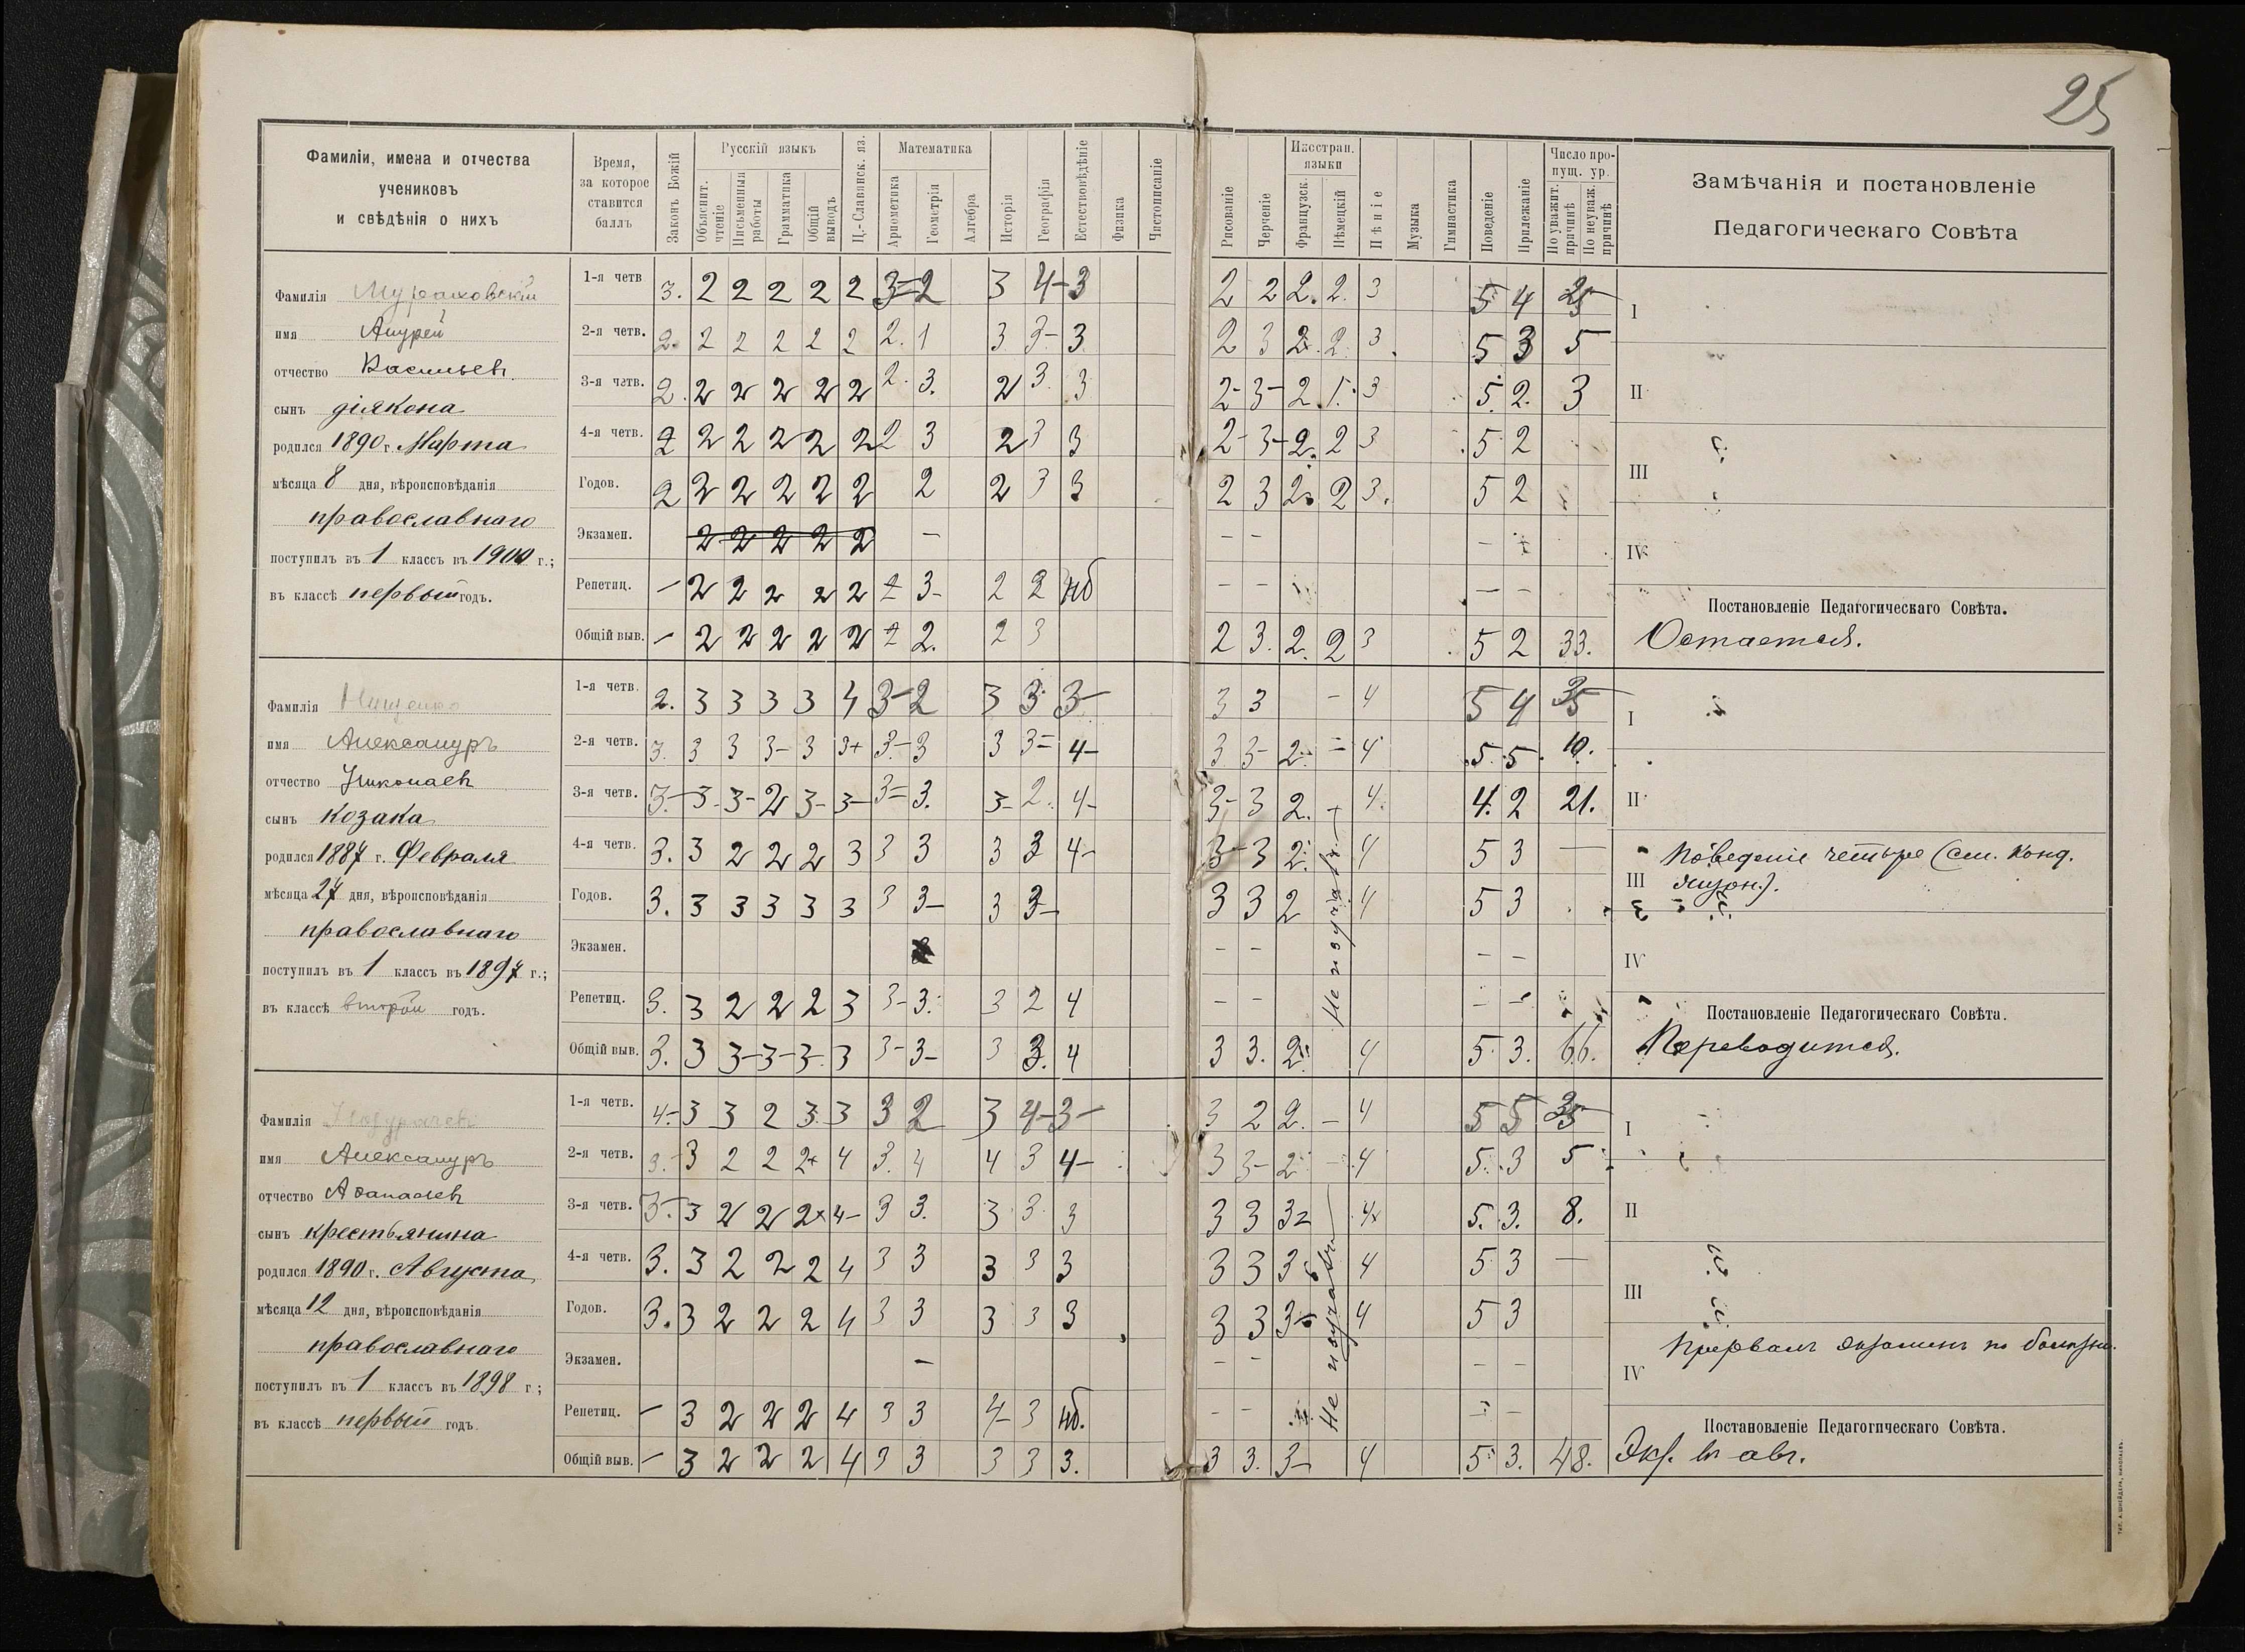 25
Фамиліи, имена и отчества
учениковъ
и свѣдѣнія о нихъ
Время,
за которое
ставится
баллъ
Законъ Божій
Русскій языкъ
Объяснит. чтеніе
Письменныя работы
Грамматика
Общій выводъ
Ц.-Славянск. яз.
Математика
Ариѳметика
Геометрія
Алгебра
Исторія
Географія
Естествовѣдѣніе
Физика
Чистописаніе
Рисованіе
Черченіе
Иностран. языки
Французск.
Нѣмецкій
Пѣніе
Музыка
Гимнастика
Поведеніе
Прилежаніе
Число пропущ. ур.
По уважит. причинѣ
По неуваж. причинѣ
Замѣчанія и постановленіе
Педагогическаго Совѣта
Фамилія Мураховскій
имя Андрей
отчество Васильев.
сынъ діякона
родился 1890 г. Марта
мѣсяца 8 дня, вѣроисповѣданія
православнаго
поступилъ въ 1 классъ въ 1900 г.;
въ классѣ первый годъ.
1-я четв 3. 2 2 2 2 2 3= 2 3 4- 3 2 2 2. 2. 3 5 4 25
2-я четв. 2. 2 2 2 2 2 2. 1 3 3- 3 2 3 2. 2. 3 5 3 5
3-я четв. 2. 2 2 2 2 2 2. 3. 2 3. 3 2- 3- 2. 1. 3 5. 2. 3
4-я четв. 2 2 2 2 2 2 2 3 2 3 3 2- 3- 2. 2 3 5 2
Годов. 2 2 2 2 2 2 2 2 3 3 2 3 2. 2 3. 5 2
Экзамен. 2 2 2 2 2 — — — —
Репетиц. — 2 2 2 2 2 2 3- 2 2 нб — — — —
Общій выв. — 2 2 2 2 2 2 2. 2 3 2 3. 2. 2 3 5 2 33.
I
II
III
IV
Постановленіе Педагогическаго Совѣта.
Остается.
Фамилія Нищенко
имя Александръ
отчество Николаев
сынъ козака
родился 1887 г. Февраля
мѣсяца 27 дня, вѣроисповѣданія
православнаго
поступилъ въ 1 классъ въ 1897 г.;
въ классѣ второй годъ.
1-я четв. 2. 3 3 3 3 4 3- 2 3 3 3- 3 3 — 4 5 4 35
2-я четв. 3. 3 3 3- 3 3+ 3- 3 3 3= 4- 3 3- 2. — 4 5. 5. 10.
3-я четв. 3.- 3- 3- 2 3- 3- 3= 3. 3- 2. 4- 3- 3 2. 4. 4. 2 21.
4-я четв. 3. 3 2 2 2 3 3 3 3 3 4- 3- 3 2. 4 5 3 —
Годов. 3. 3 3 3 3 3 3 3- 3 3- 3 3 2 4 5 3
Экзамен. — — — —
Репетиц. 3. 3 2 2 2 3 3- 3. 3 2 4 — — — —
Общій выв. 3. 3 3- 3- 3- 3 3- 3- 3 3. 4 3 3. 2. 4 5 3. 66.
Не изучалъ
I
II
Поведеніе четыре (см. Конд.
III журн.).
IV
Постановленіе Педагогическаго Совѣта.
Переводится.
Фамилія
имя Александръ
отчество Аѳанасьев
сынъ крестьянина
родился 1890 г. Августа
мѣсяца 12 дня, вѣроисповѣданія
православнаго
поступилъ въ 1 классъ въ 1898 г;
въ классѣ первый годъ.
1-я четв. 4- 3 3 2 3. 3 3 2 3 4- 3- 3 2 2. — 4 5 5 35
2-я четв. 3.- 3 2 2 2+ 4 3. 4 4 3 4- 3 3- 2 — 4 5. 3 5
3-я четв. 3.- 3 2 2 2+ 4- 3 3. 3 3 3 3 3 3= 4 5. 3. 8.
4-я четв. 3. 3 2 2 2 4 3 3 3 3 3 3 3 3 4 5 3 —
Годов. 3. 3 2 2 2 4 3 3 3 3 3 3 3 3- 4 5 3
Экзамен. — — — — —
Репетиц. — 3 2 2 2 4 3 3 4- 3 нб. — — — —
Общій выв. — 3 2 2 2 4 3 3 3 3 3. 3 3. 3- 4 5 3. 48.
Не изучалъ
I
II
III
Прервалъ экзаменъ по болѣзни.
IV
Постановленіе Педагогическаго Совѣта.
Экз. въ авг.